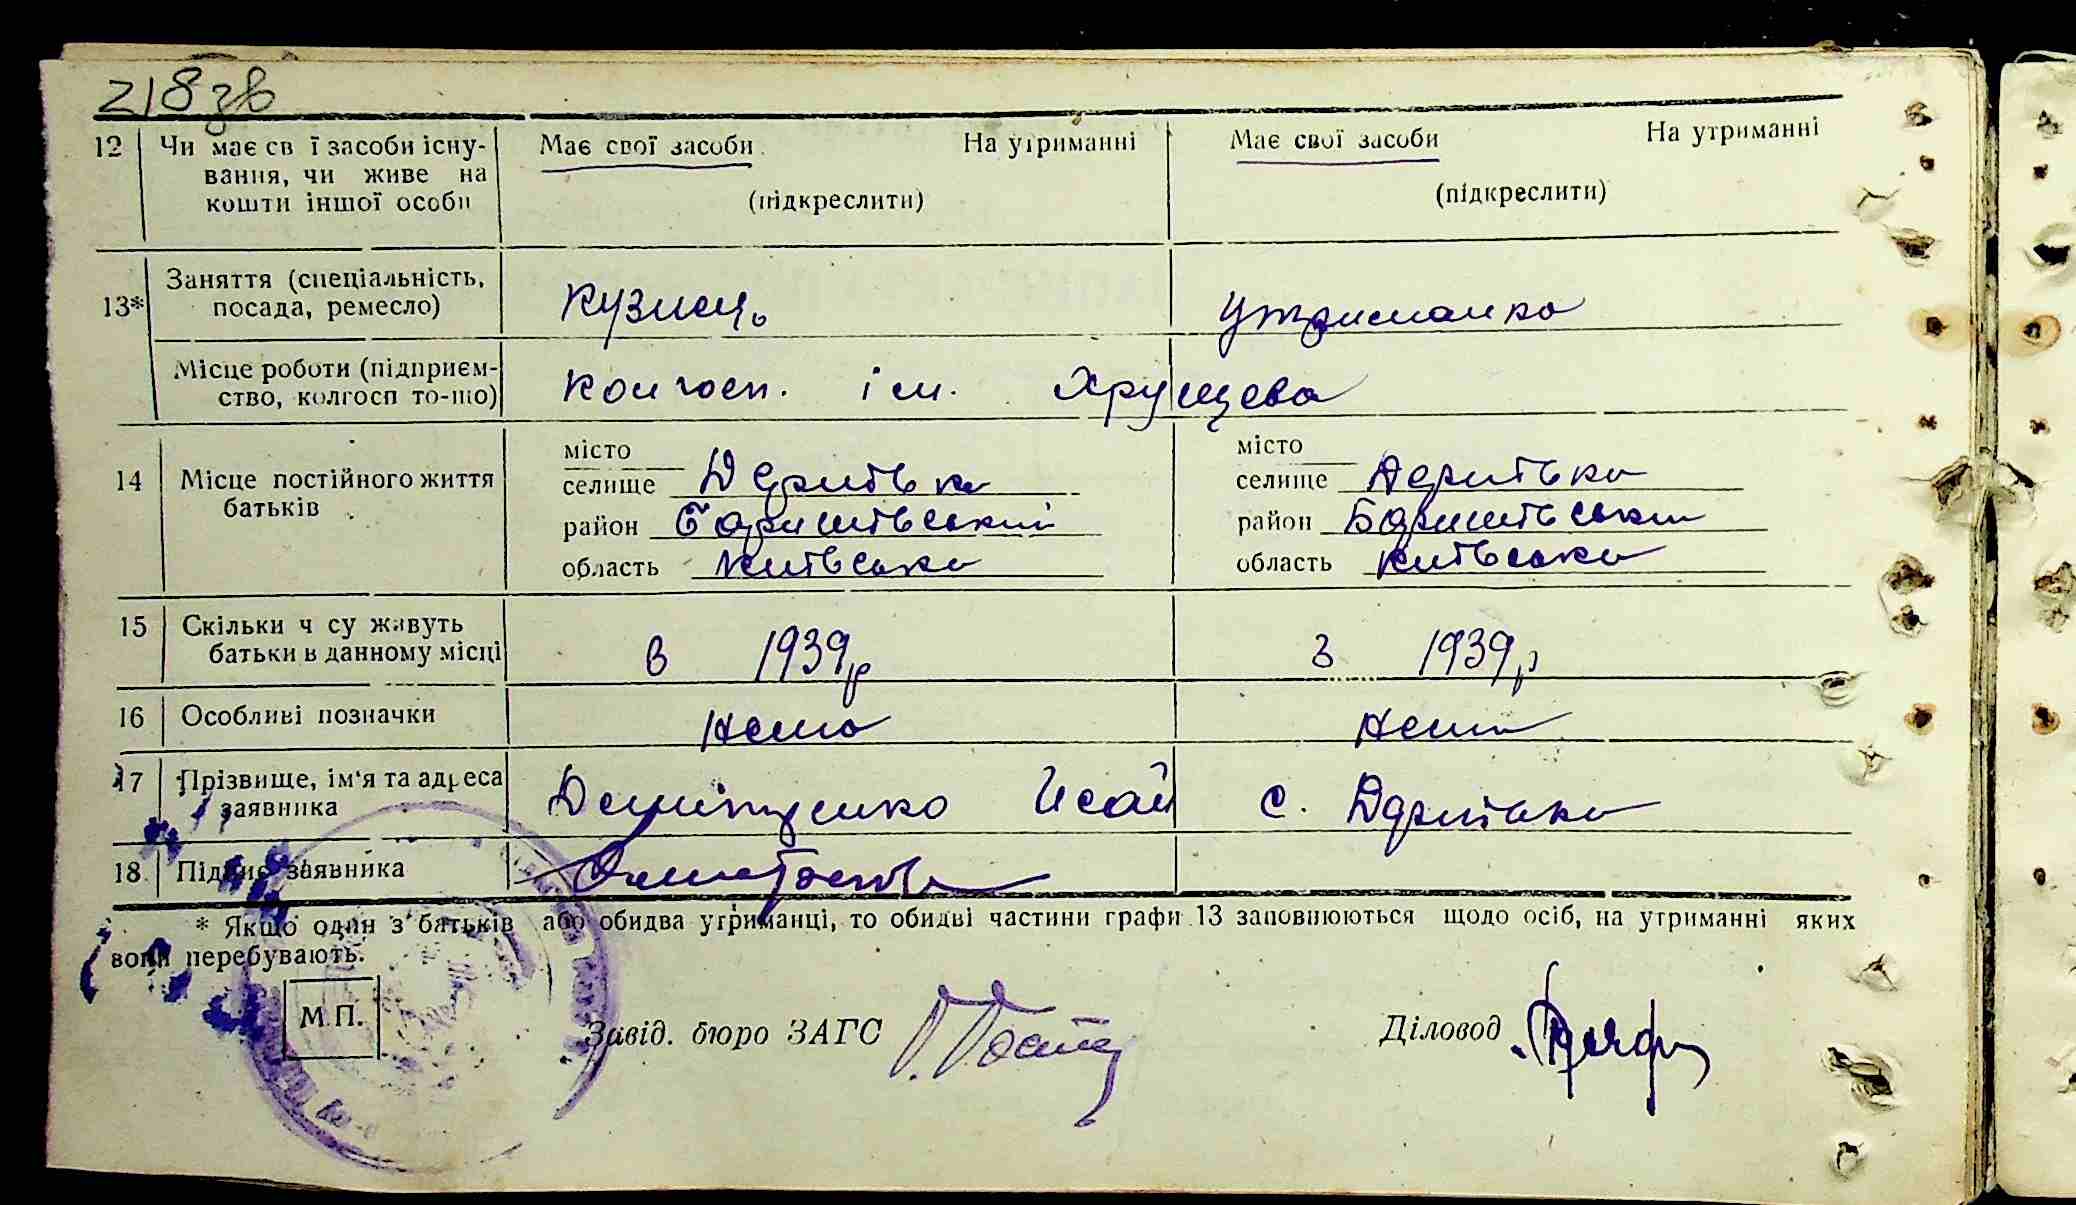 218 зв
12 Чи має св ї засоби існу- Має свої засоби На утриманні Має свої засоби На утриманні
вання, чи живе на
кошти іншої особи (підкреслити) (підкреслити)
Заняття (спеціальність,
13* посада, ремесло) Кузнець Утриманка
Місце роботи (підприєм-
ство, колгосп то-що) Колгосп. ім. Хрущева
місто місто
14 Місце постійного життя селище Дернівка селище Дернівка
батьків район Баришівський район Баришівський
область Київська область Київська
15 Скільки ч су живуть
батьки в данному місці в 1939р З 1939р
16 Особливі позначки Нема Нема
17 Прізвище, ім'я та адреса
заявника Исай с. Дернівка
18. Підпис заявника
* Якщо один з батьків або обидва утриманці, то обидві частини графи 13 заповнюються щодо осіб, на утриманні яких
вони перебувають.
М.П.
Завід. бюро ЗАГС Діловод